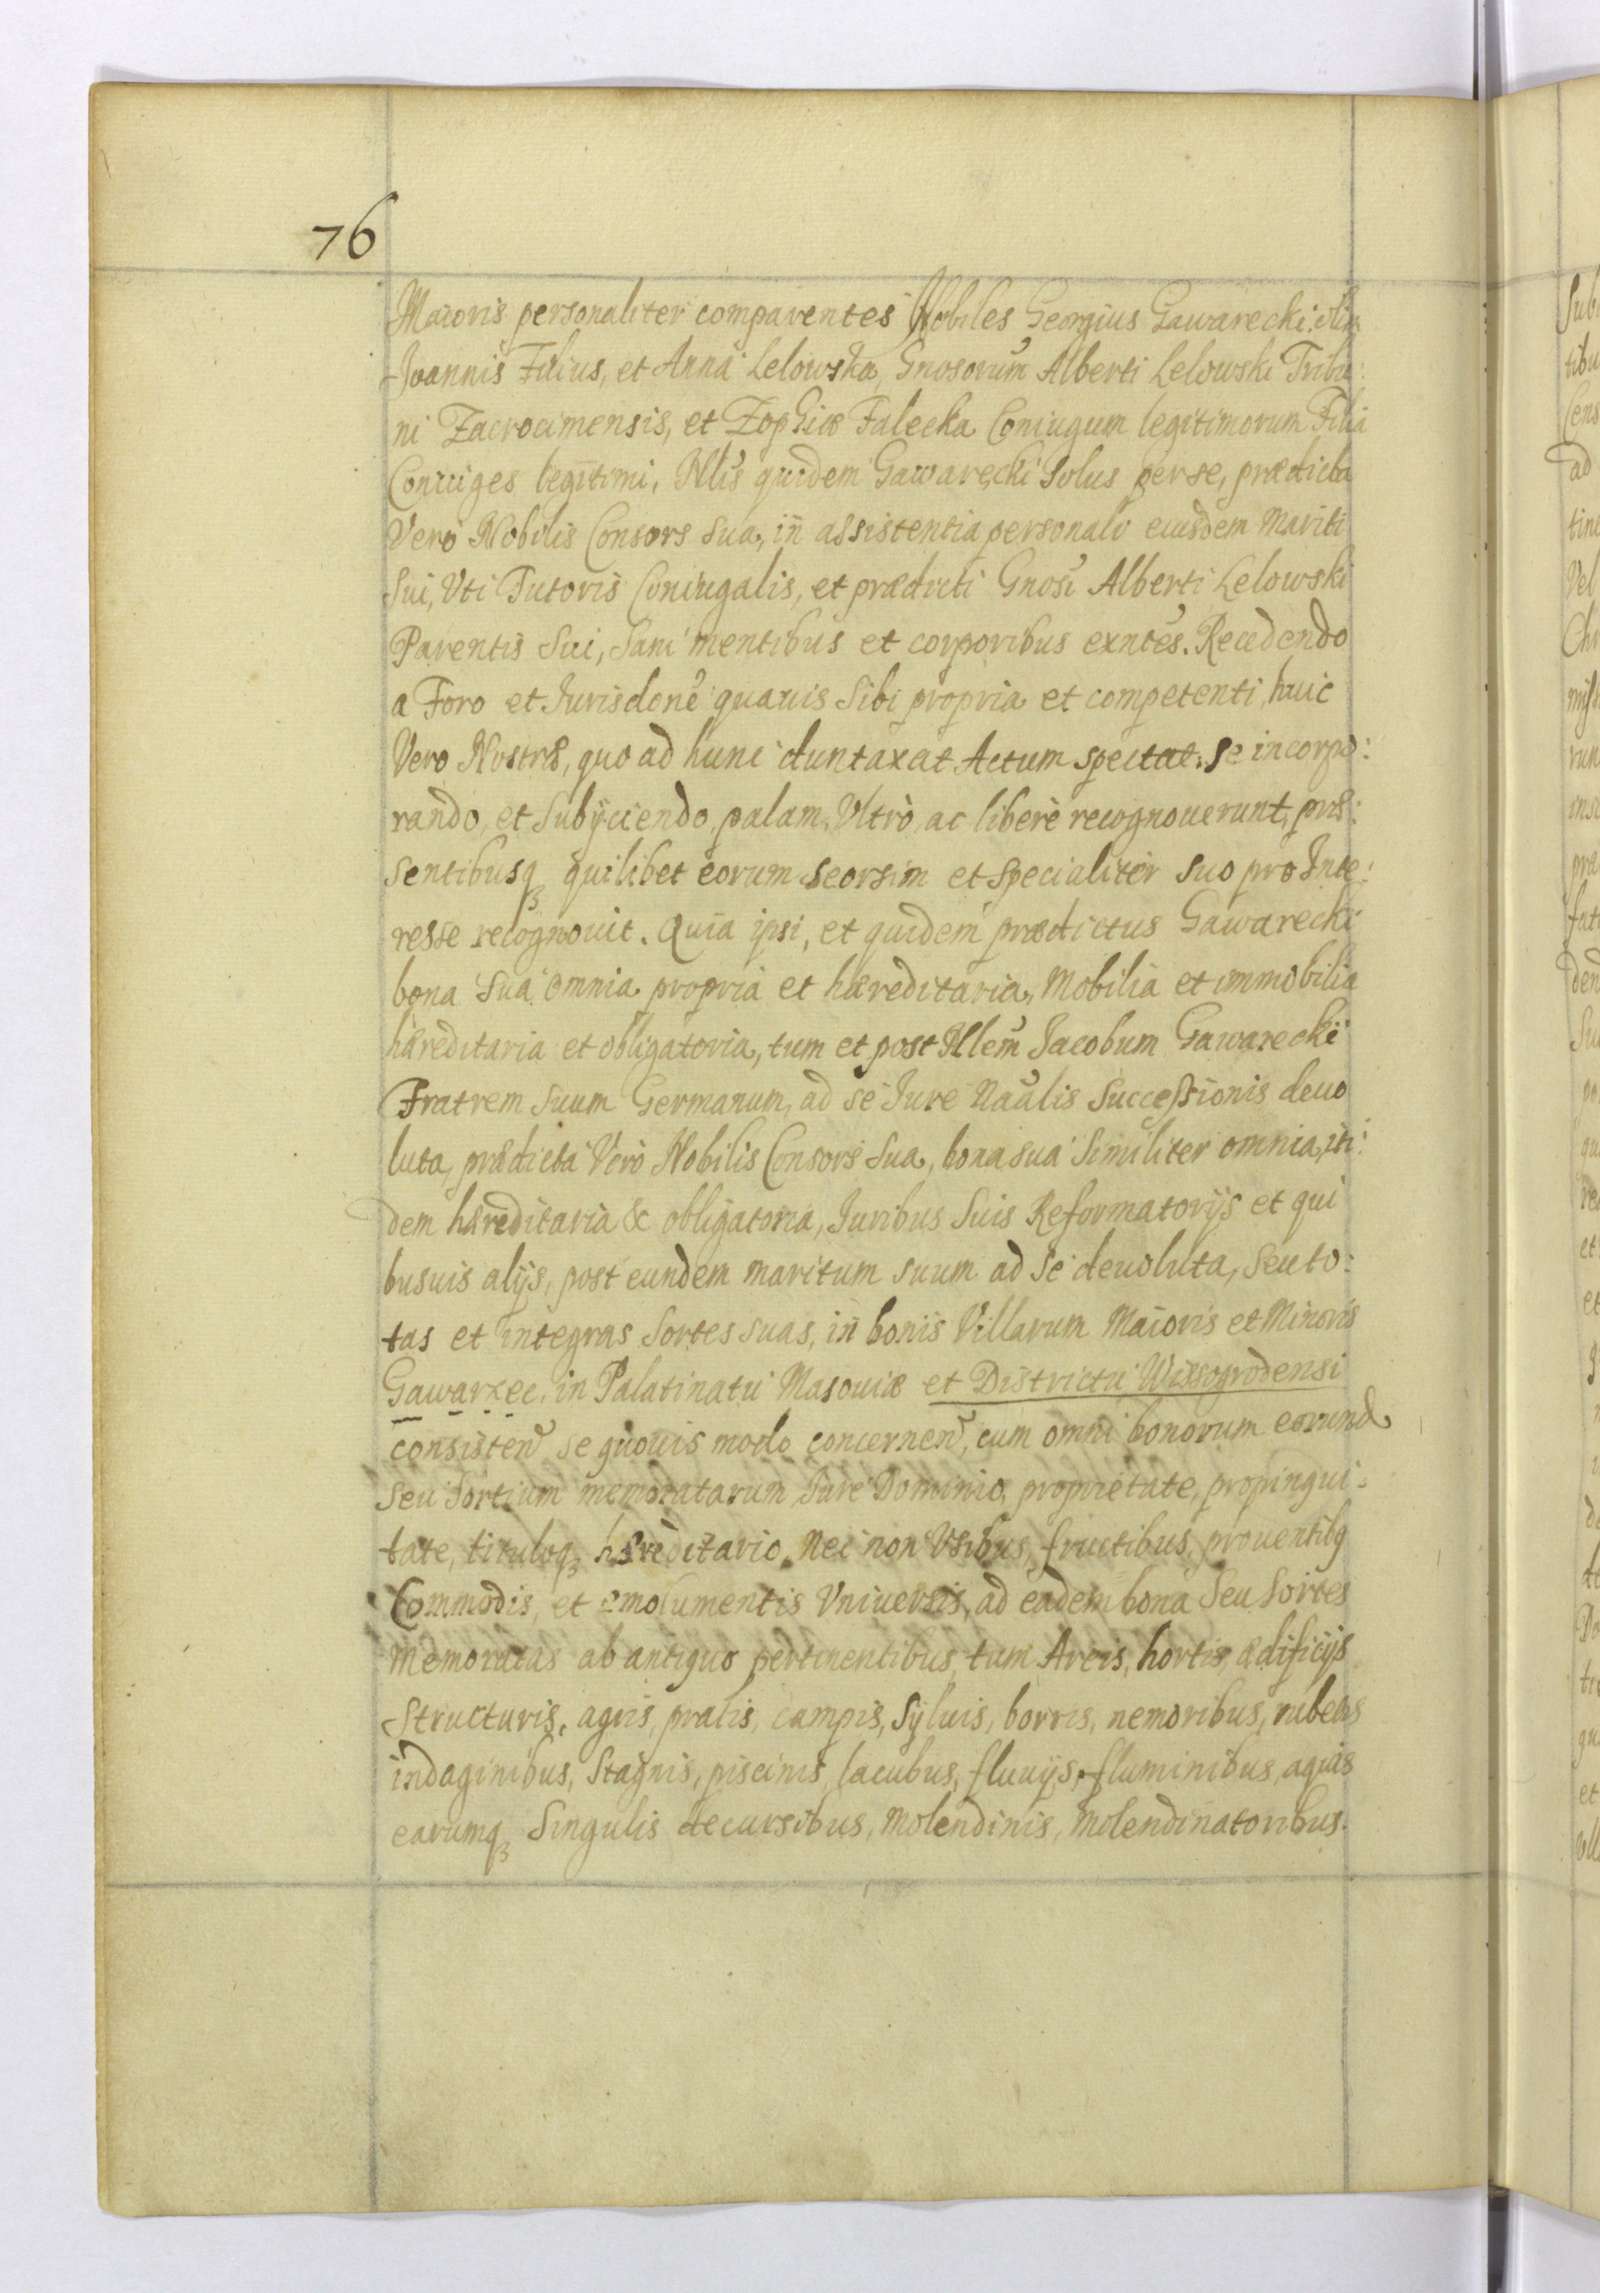 76
Maioris personaliter comparentes Nobiles Georgius Gawarecki olim
Joannis Filius, et Anna Lelowska, Gnosorum Alberti Lelowski Tribu:
ni Zacrocimensis, et Zophiæ Falecka Coniugum legitimorum Filia
Coniuges legitimi, Nlis quidem Gawarecki Solus per se, prædicta
Vero Nobilis Consors Sua, in assistentia personali eiusdem Mariti
Sui, Vti Tutoris Coniugalis, et prædicti Gnosi Alberti Lelowski
Parentis Sui, Sani mentibus et corporibus exntes. Recedendo
a Foro et Jurisdone quauis Sibi propria et competenti, huic
Vero Nostræ, quo ad hunc duntaxat Actum spectat. se incorpo:
rando, et Subÿciendo, palam, Vltrò, ac liberè recognouerunt, præ:
sentibusq3 quilibet eorum seorsim et specialiter suo pro Inte:
resse recognouit. Quia ipsi, et quidem prædictus Gawarecki
bona Sua omnia propria et hæreditaria, Mobilia et immobilia
hæreditaria et obligatoria, tum et post Nlem Jacobum Gawarecki
Fratrem Suum Germanum, ad se Jure Naalis Successionis deuo
luta, prædicta Verò Nobilis Consors Sua, bona sua Similiter omnia, iti:
dem hæreditaria & obligatoria, Juribus Suis Reformatorÿs et qui
busuis alÿs, post eundem maritum suum ad se deuoluta, Seu to:
tas et integras Sortes suas, in bonis Villarum Maioris et Minoris
Gawarzec, in Palatinatu Masouiæ et Districtu Wissogrodensi
consisten̄ se quouis modo concernen̄, cum omni bonorum eorund
Seu Sortium memoratarum Jure Dominio, proprietate, propinqui:
tate, tituloq3 hæreditario. Nec non Vsibus, fructibus, prouentibg
Commodis, et emolumentis Vniuersis, ad eadem bona Seu Sortes
Memoratas ab antiquo pertinentibus, tum Areis, hortis, ædificÿs
Structuris, agris, pratis, campis, Syluis, borris, nemoribus, rubetis
indaginibus, Stagnis, piscinis, lacubus, fluuÿs, fluminibus, aquis
earumq3 Singulis decursibus, Molendinis, Molendinatoribus.